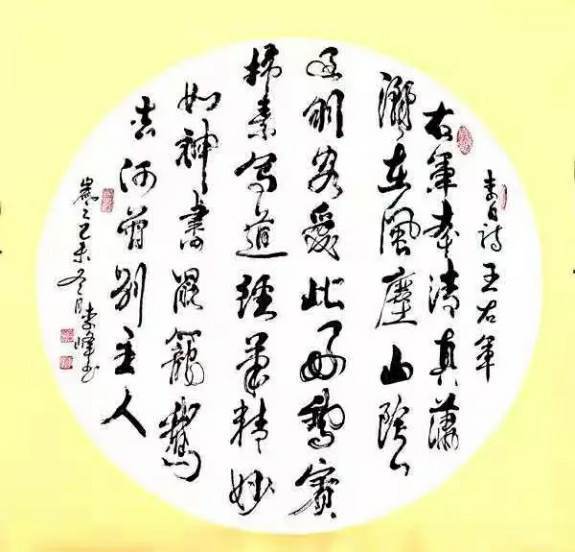 李白詩王右軍
右軍本清真瀟
灑在風塵山陰
過羽客愛此好鵝賓
掃素寫道經筆精妙
如神書罷籠鵝
去何曾別主人
未冬月李峰书